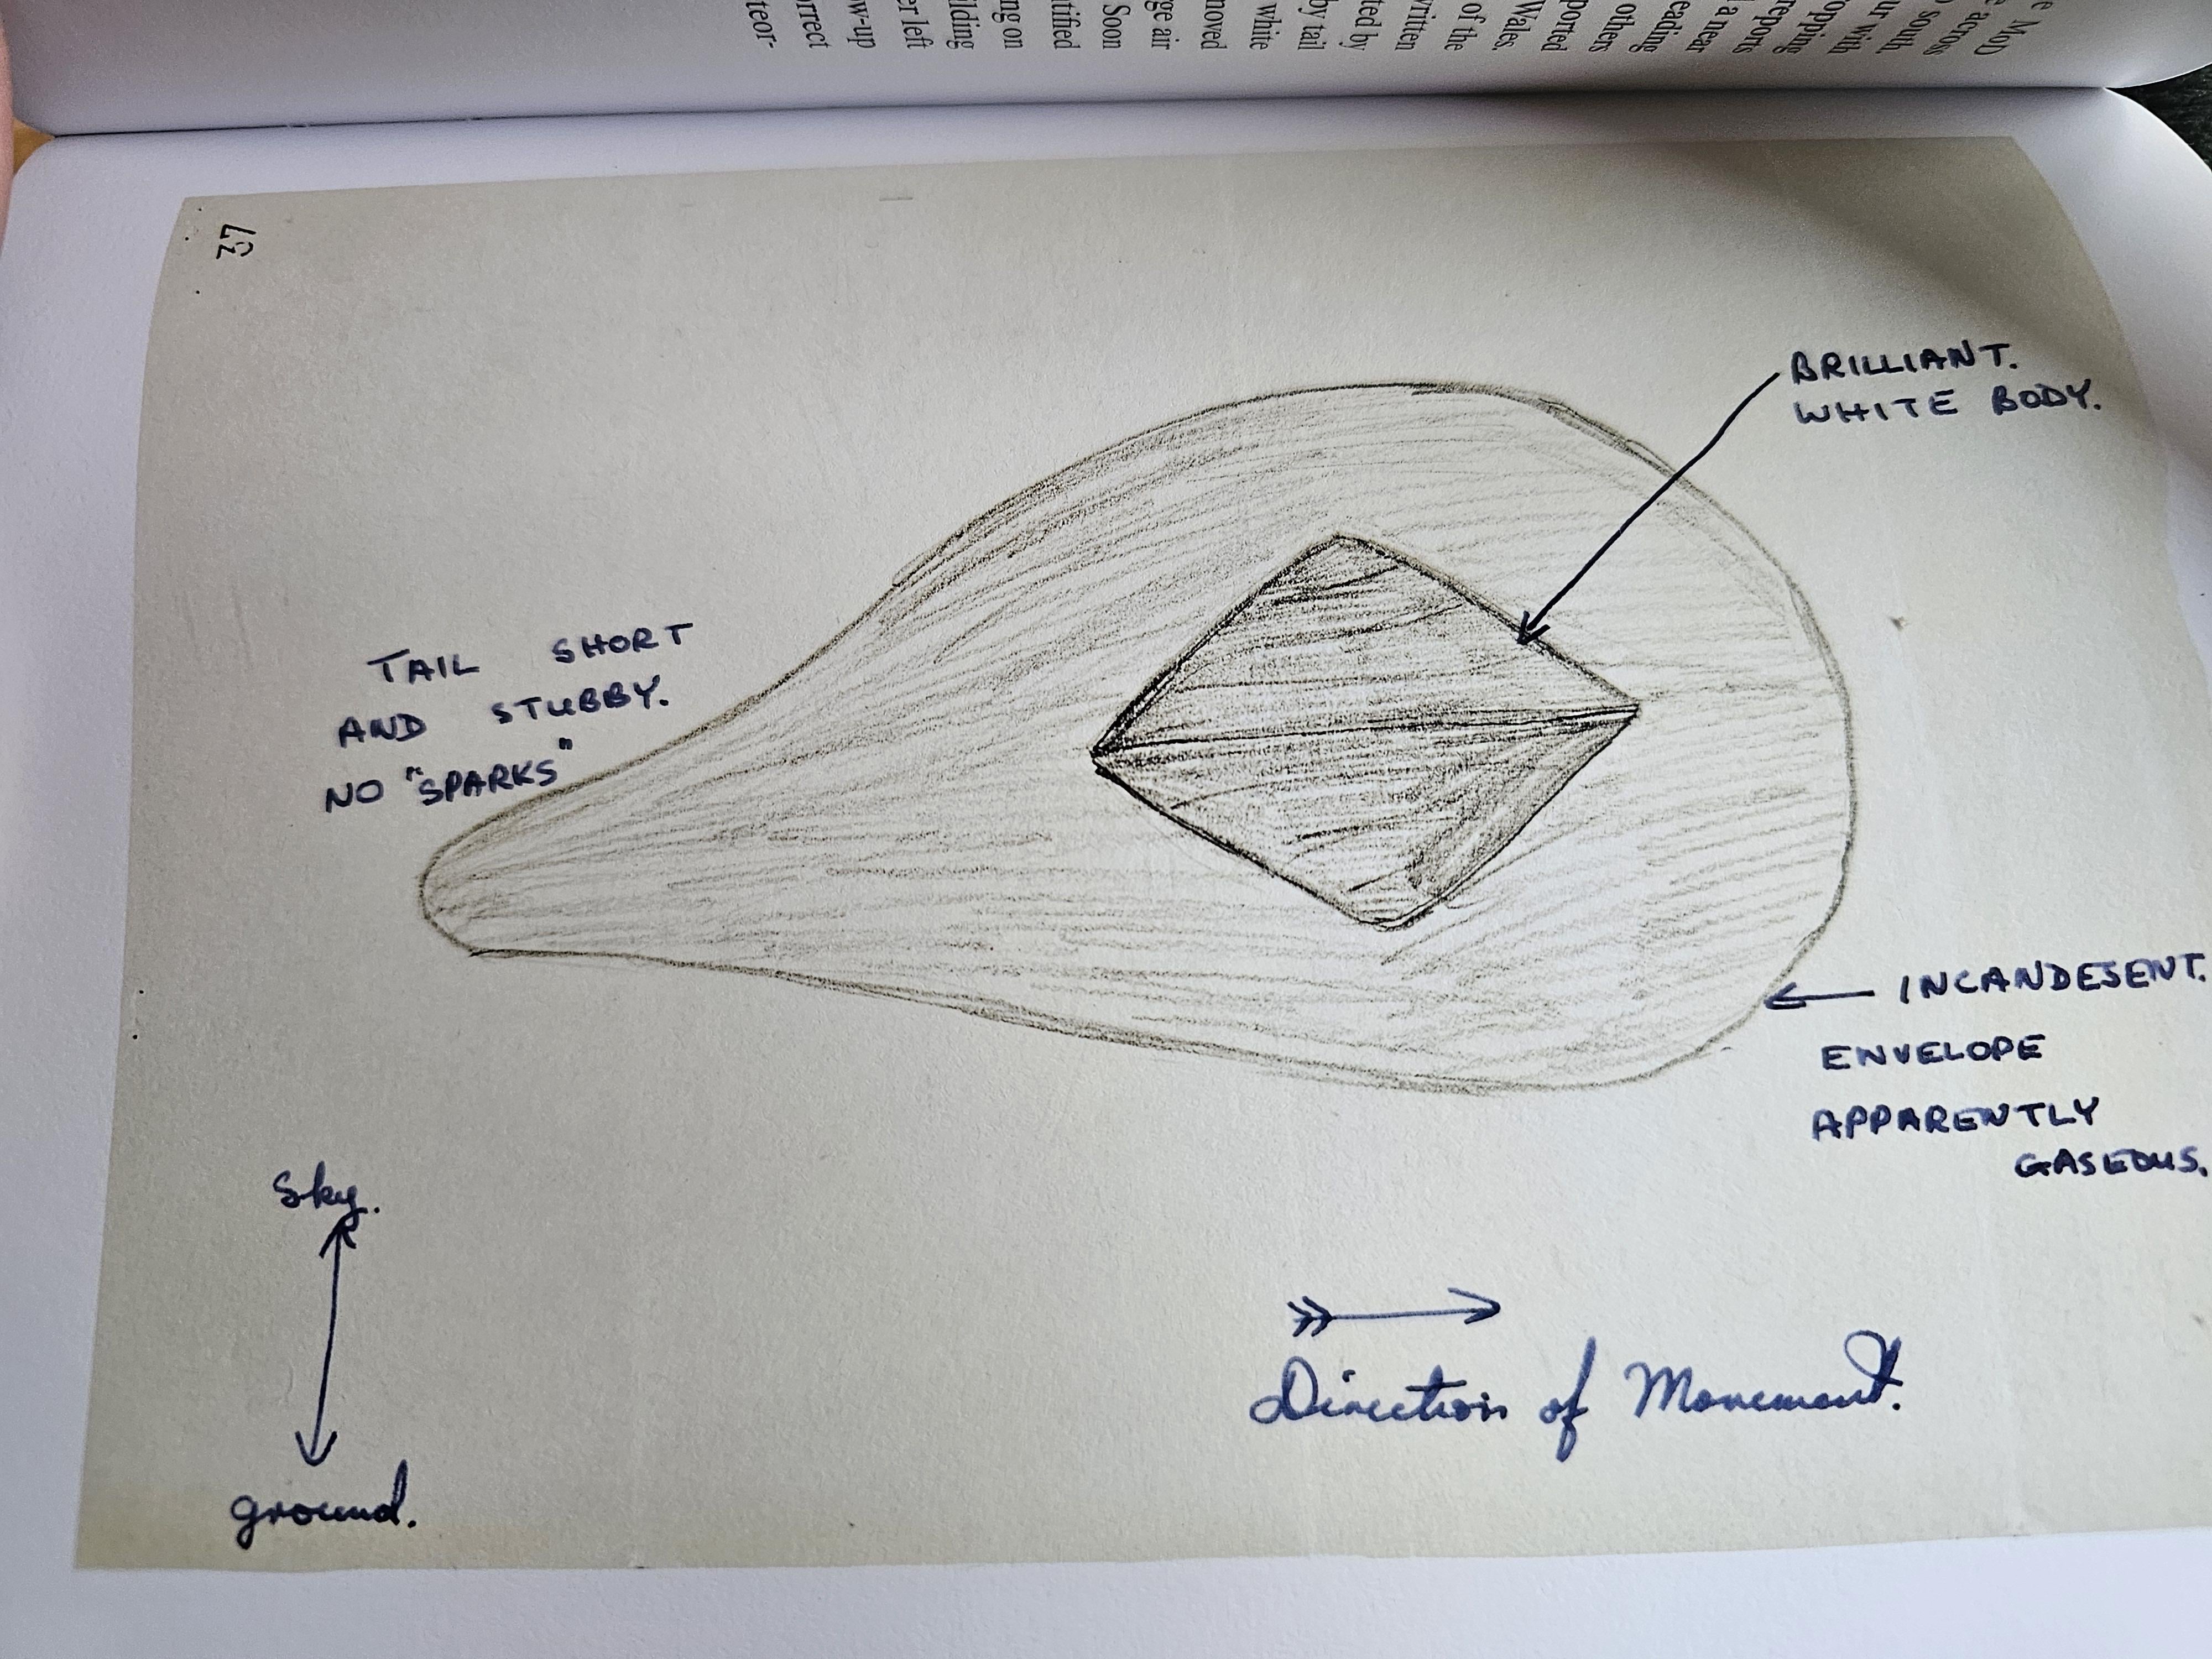 e MoD
e across
o south,
ur with
opping
reports
l a near
eading
others
ported
Wales.
of the
written
ted by
by tail
white
moved
rge air
Soon
ntified
ng on
ilding
er left
ow-up
orrect
teor-
37
BRILLIANT.
WHITE BODY.
TAIL SHORT
AND STUBBY.
NO "SPARKS"
INCANDESENT.
ENVELOPE
APPARENTLY
GASEOUS.
Sky.
ground.
Direction of Movement.